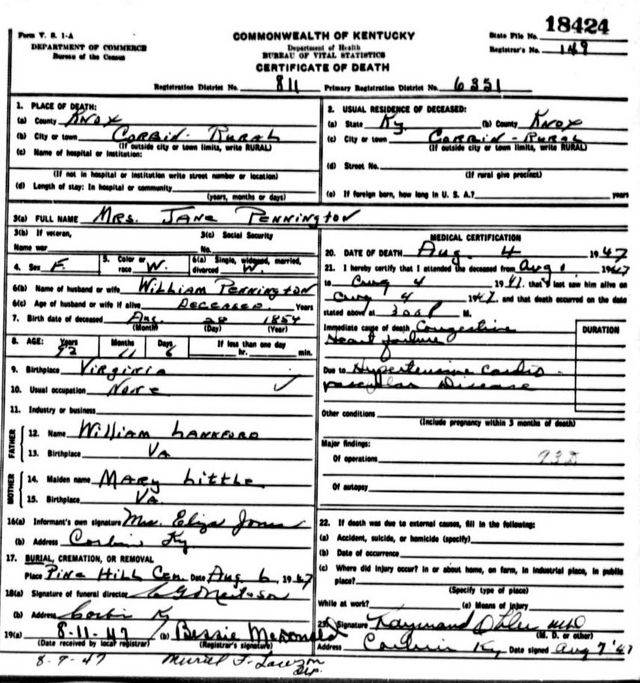 Form V. S. 1-A
DEPARTMENT OF COMMERCE
Bureau of the Census
COMMONWEALTH OF KENTUCKY
Department of Health
BUREAU OF VITAL STATISTICS
CERTIFICATE OF DEATH
State File No. 18424
Registrar's No. 149
Registration District No. 811 Primary Registration District No. 6351
1. PLACE OF DEATH:
(a) County Knox
(b) City or town Corbin - Rural
(If outside city or town limits, write RURAL)
(c) Name of hospital or institution:
(If not in hospital or institution write street number or location)
(d) Length of stay: In hospital or community
(years, months or days)
2. USUAL RESIDENCE OF DECEASED:
(a) State Ky. (b) County Knox
(c) City or town Corbin - Rural
(If outside city or town limits, write RURAL)
(d) Street No.
(If rural give precinct)
(e) If foreign born, how long in U. S. A.? years
3(a) FULL NAME Mrs. Jane Pennington
3(b) If veteran, 3(c) Social Security
Name war No.
4. Sex F. 5. Color or race W. 6(a) Single, widowed, married, divorced W.
6(b) Name of husband or wife William Pennington
6(c) Age of husband or wife if alive Deceased years
7. Birth date of deceased Aug. 28 1854
(Month) (Day) (Year)
8. AGE: Years Months Days If less than one day
92 11 6 hr. min.
9. Birthplace Virginia
10. Usual occupation None
11. Industry or business
FATHER
12. Name William Lankford
13. Birthplace Va
MOTHER
14. Maiden name Mary Little
15. Birthplace Va
16(a) Informant's own signature Mrs. Eliza Jones
(b) Address Corbin Ky
17. BURIAL, CREMATION, OR REMOVAL
Place Pine Hill Cem. Date Aug 6, 1947
18(a) Signature of funeral director
(b) Address Corbin Ky
19(a) 8-11-47 (b) Bessie McDonald
(Date received by local registrar) (Registrar's signature)
8-9-47 Muriel F. Lawson
Dep.
MEDICAL CERTIFICATION
20. DATE OF DEATH Aug 4 1947
21. I hereby certify that I attended the deceased from Aug 1, 1947
to Aug 4 1947, that I last saw him alive on
Aug 4 1947, and that death occurred on the date
stated above at M.
Immediate cause of death Congestive
Heart failure
DURATION
Due to Hypertensive Cardio-
vascular Disease
Other conditions
(Include pregnancy within 3 months of death)
Major findings:
Of operations
Of autopsy
22. If death was due to external causes, fill in the following:
(a) Accident, suicide, or homicide (specify)
(b) Date of occurrence
(c) Where did injury occur? In or about home, on farm, in industrial place, in public
place?
(Specify type of place)
While at work? (e) Means of injury
23. Signature MD
(M. D. or other)
Address Corbin Ky Date signed Aug 7 '47